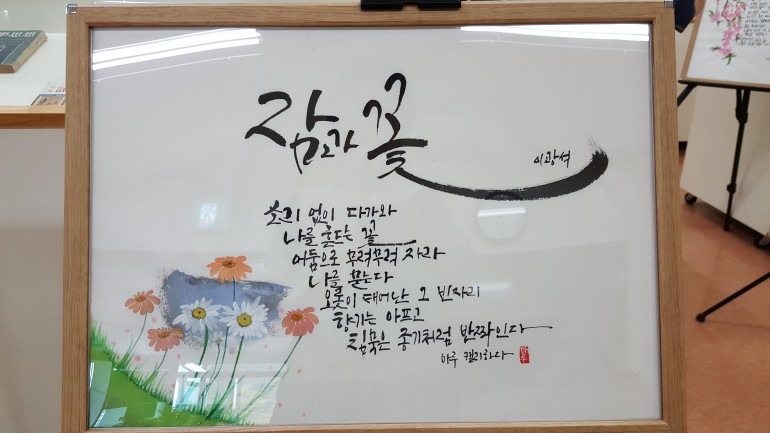 잠과 꽃
이광석
소리 없이 다가와
나를 흔드는 꽃
어둠으로 꾸역꾸역 자라
나를 묻는다
오롯이 태어난 그 빈자리
향기는 아프고
침묵은 종기처럼 반짝인다
캘리하다